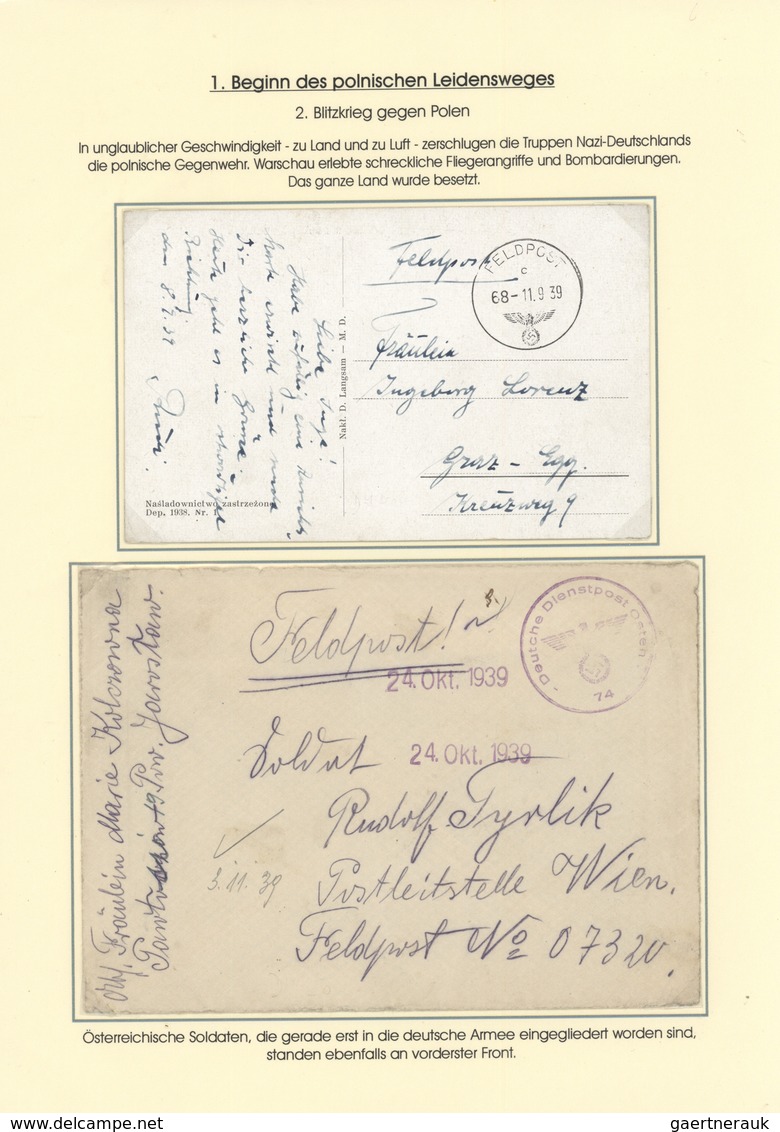 1. Beginn des polnischen Leidensweges
2. Blitzkrieg gegen Polen
In unglaublicher Geschwindigkeit - zu Land und zu Luft - zerschlugen die Truppen Nazi-Deutschlands
die polnische Gegenwehr. Warschau erlebte schreckliche Fliegerangriffe und Bombardierungen.
Das ganze Land wurde besetzt.
Liebe Inge!
Habe zufällig eine Ansichts-
karte erwischt und sende
Dir herzliche Grüsse.
Heute geht es in
Richtung
den 8.9.39
Rudi.
Nakł. D. Langsam — M. D.
Naśladownictwo zastrzeżone
Dep. 1938. Nr. 1
Feldpost
FELDPOST
c
68-11.9 39
Fräulein
Ingeborg Lorenz
Graz - Egg.
Kreuzweg 9
Fräulein Marie
Jarosław.
Feldpost!
Deutsche Dienstpost Osten
74
24. Okt. 1939
24. Okt. 1939
Soldat
Rudolf Tyrlik
Postleitstelle Wien.
Feldpost No 07320
3.11.39
Österreichische Soldaten, die gerade erst in die deutsche Armee eingegliedert worden sind,
standen ebenfalls an vorderster Front.
gaertnerauk